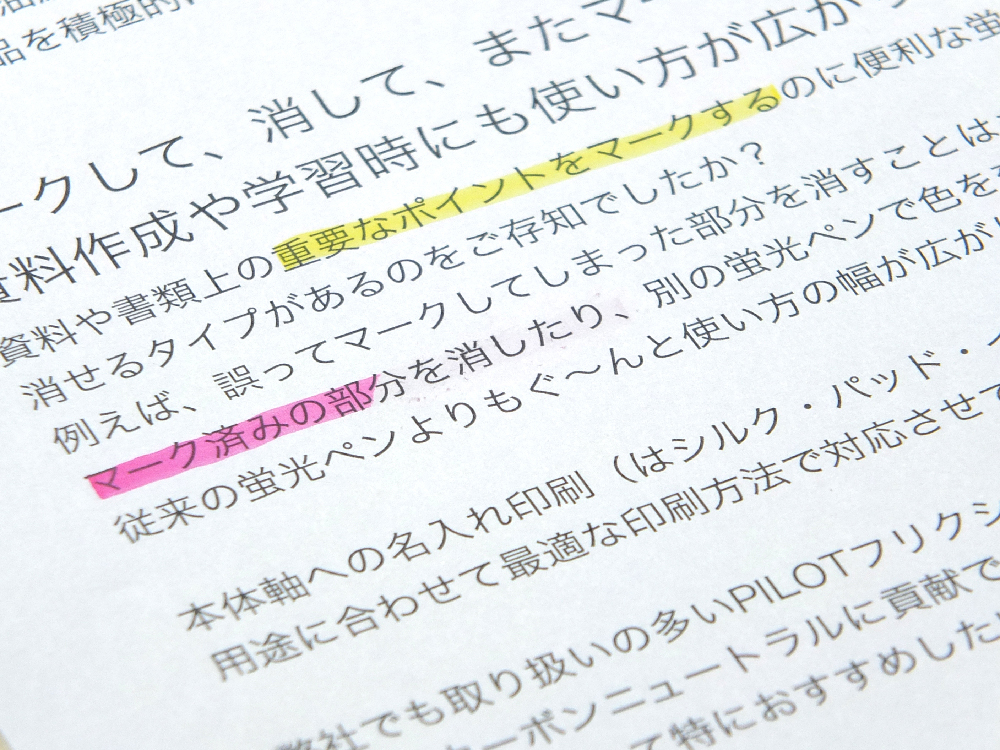 品を積極的に
ークして、消して、またマー
資料作成や学習時にも使い方が広が
資料や書類上の重要なポイントをマークするのに便利な蛍
消せるタイプがあるのをご存知でしたか？
例えば、誤ってマークしてしまった部分を消すことは
マーク済みの部分を消したり、別の蛍光ペンで色を
従来の蛍光ペンよりもぐ～んと使い方の幅が広が
本体軸への名入れ印刷（はシルク・パッド・
用途に合わせて最適な印刷方法で対応させて
弊社でも取り扱いの多いPILOTフリクシ
カーボンニュートラルに貢献で
て特におすすめした